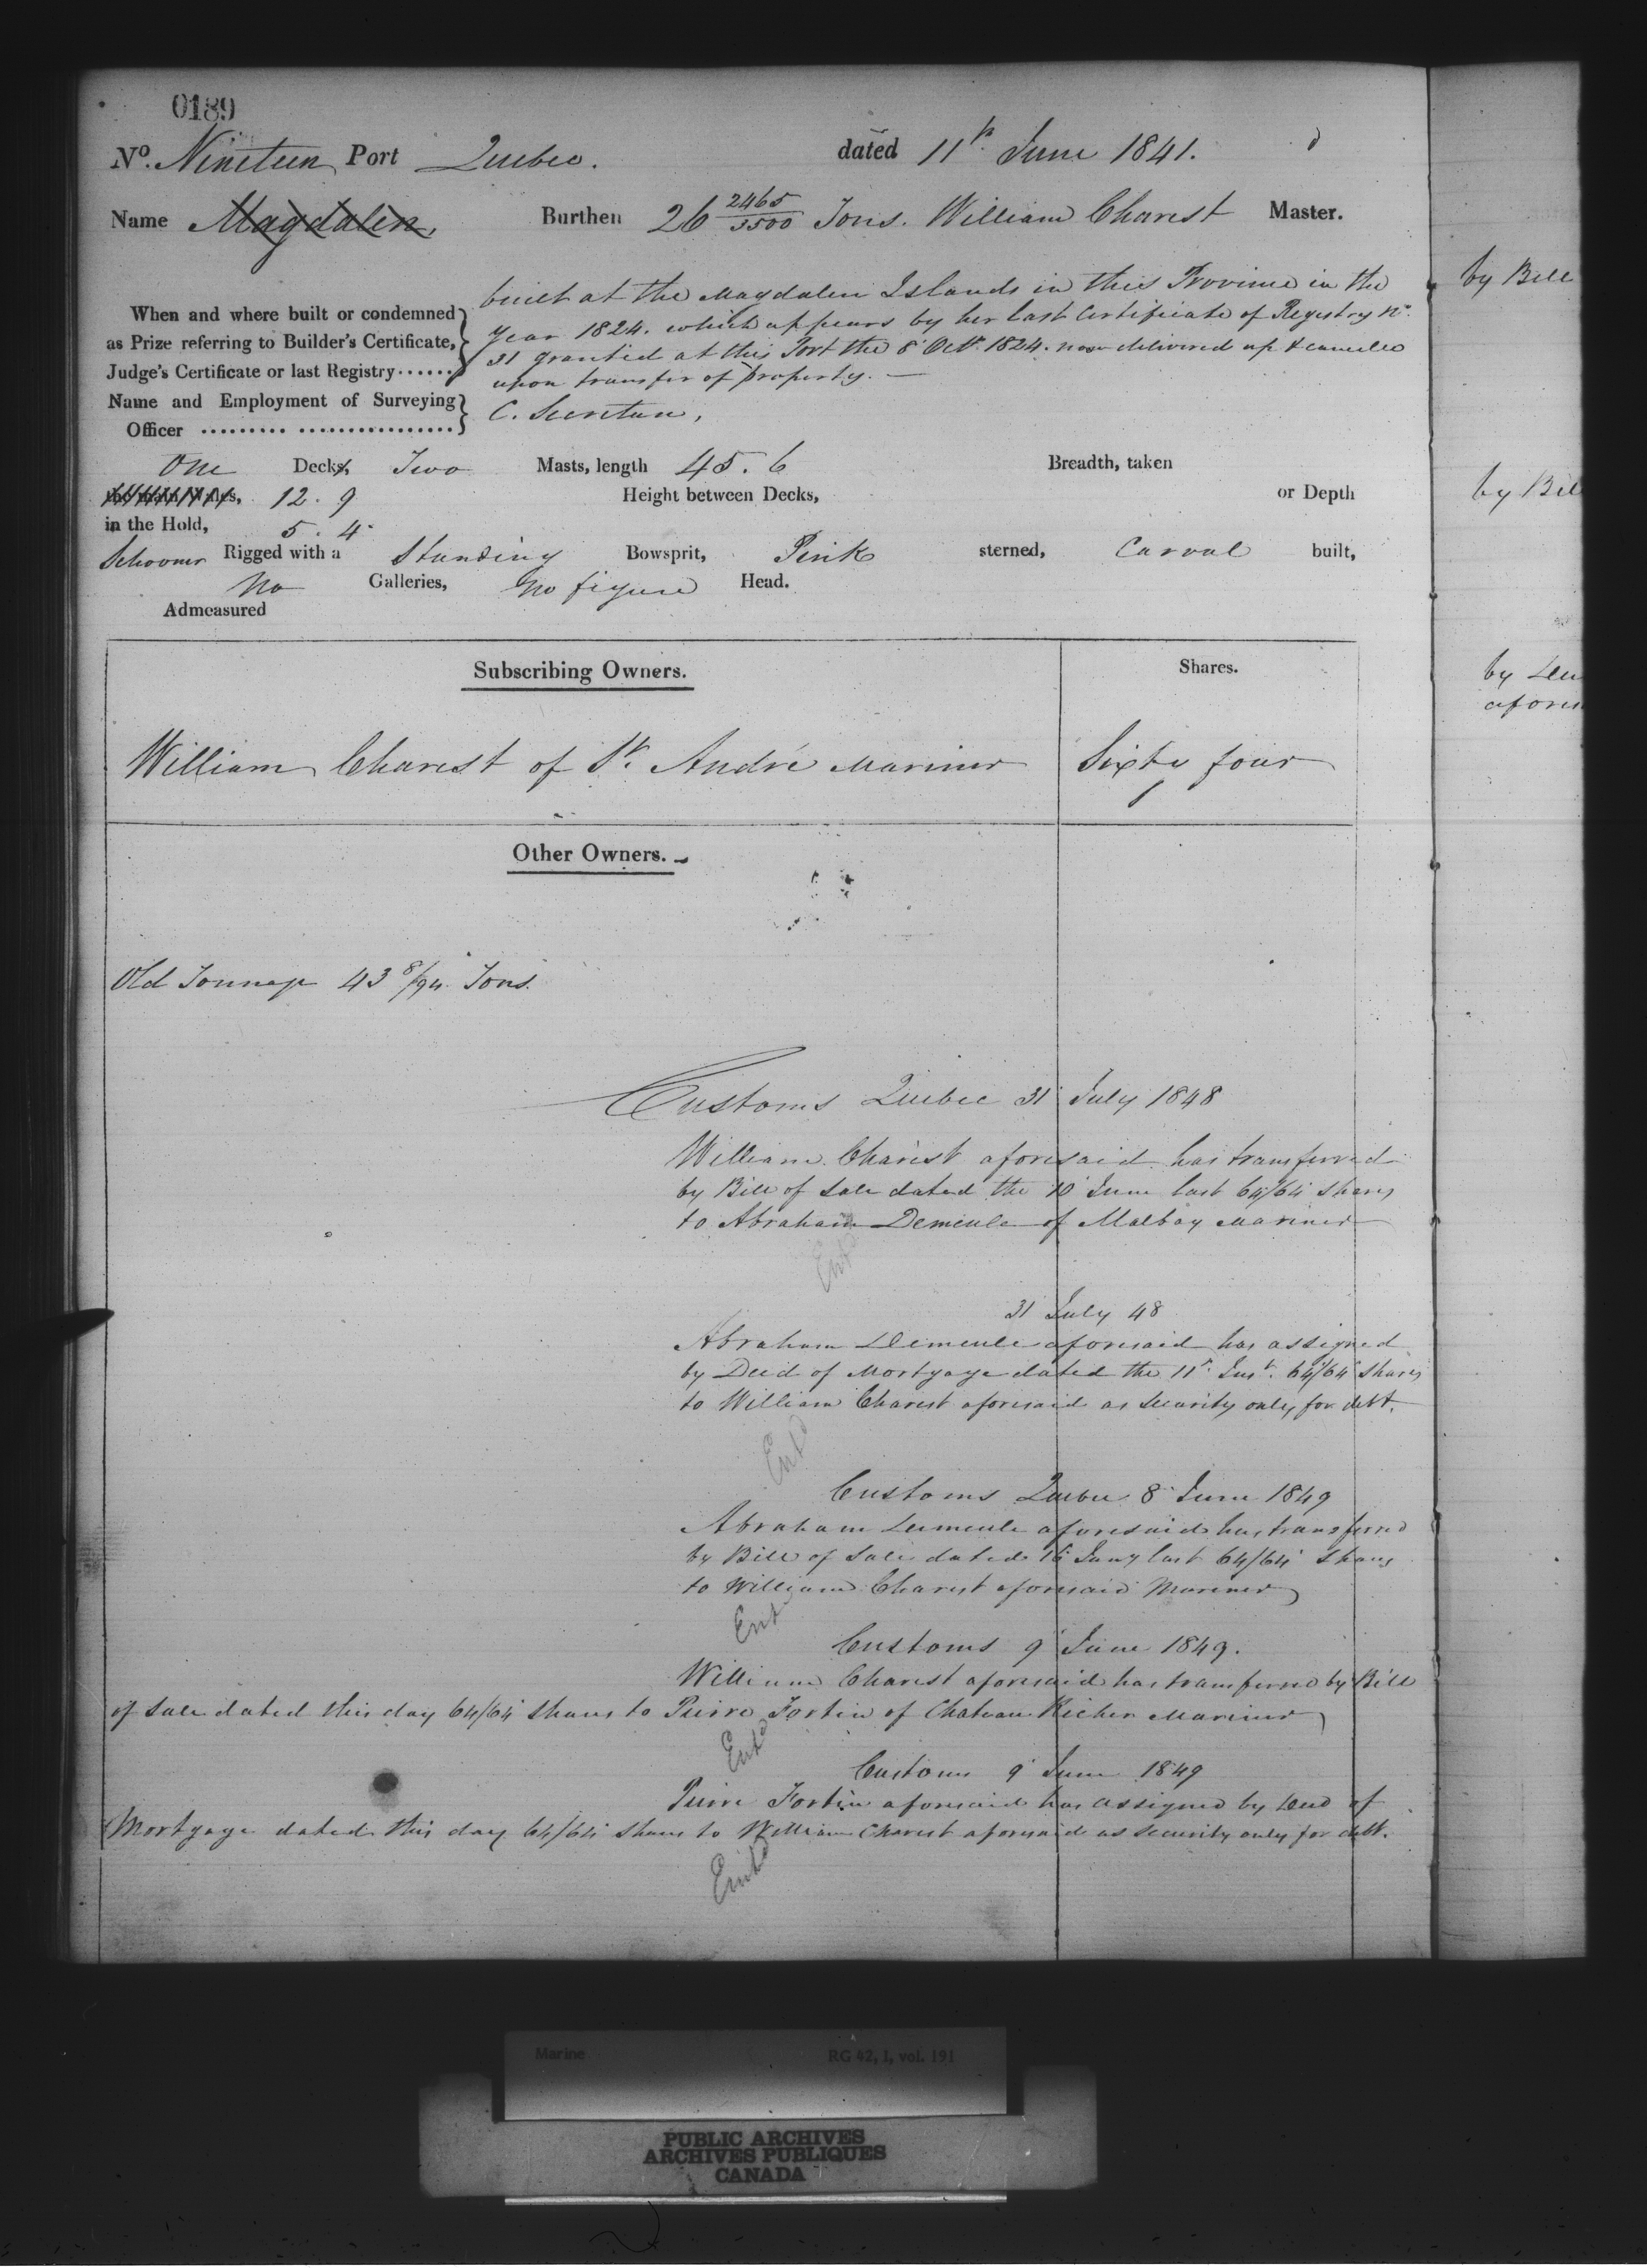 0189
No. Nineteen Port Quebec. dated 11th June 1841.
Name Magdalen, Burthen 26 2465/3500 Tons. William Charest Master.
When and where built or condemned as Prize referring to Builder's Certificate, Judge's Certificate or last Registry......
built at the Magdalen Islands in this Province in the
year 1824. which appears by her last Certificate of Registry No.
31 granted at this Port the 8 Octr. 1824. now delivered up & cancelled
upon transfer of property. —
Name and Employment of Surveying Officer ......... ................
C. Secretan,
One Decks, Two Masts, length 45.6 Breadth, taken
12.9 Height between Decks, or Depth
in the Hold, 5.4.
Schooner Rigged with a Standing Bowsprit, Pink sterned, Carvel built,
No Galleries, No figure Head.
Admeasured
Subscribing Owners. Shares.
William Charest of St. André Mariner Sixty four
Other Owners. -
Old Tonnage 43 8/94 Tons.
Customs Quebec 31 July 1848
William Charest aforesaid has transferred
by Bill of Sale dated the 10 June last 64/64 shares
to Abraham Demeule of Malbay Mariner
Entd
31 July 48
Abraham Demeule aforesaid has assigned
by Deed of Mortgage dated the 11th Inst. 64/64 shares
to William Charest aforesaid as security only for debt.
Entd
Customs Quebec 8 June 1849
Abraham Demeule aforesaid has transferred
by Bill of Sale dated 16 Jany last 64/64 shares
to William Charest aforesaid Mariner
Entd
Customs 9 June 1849.
William Charest aforesaid has transferred by Bill
of sale dated this day 64/64 shares to Pierre Fortin of Chateau Richer Mariner
Entd
Customs 9 June 1849
Pierre Fortin aforesaid has assigned by Deed of
Mortgage dated this day 64/64 shares to William Charest aforesaid as security only for debt.
Entd
by Bill
by Bil
by
afores
Marine RG 42, I, vol. 191
PUBLIC ARCHIVES
ARCHIVES PUBLIQUES
CANADA